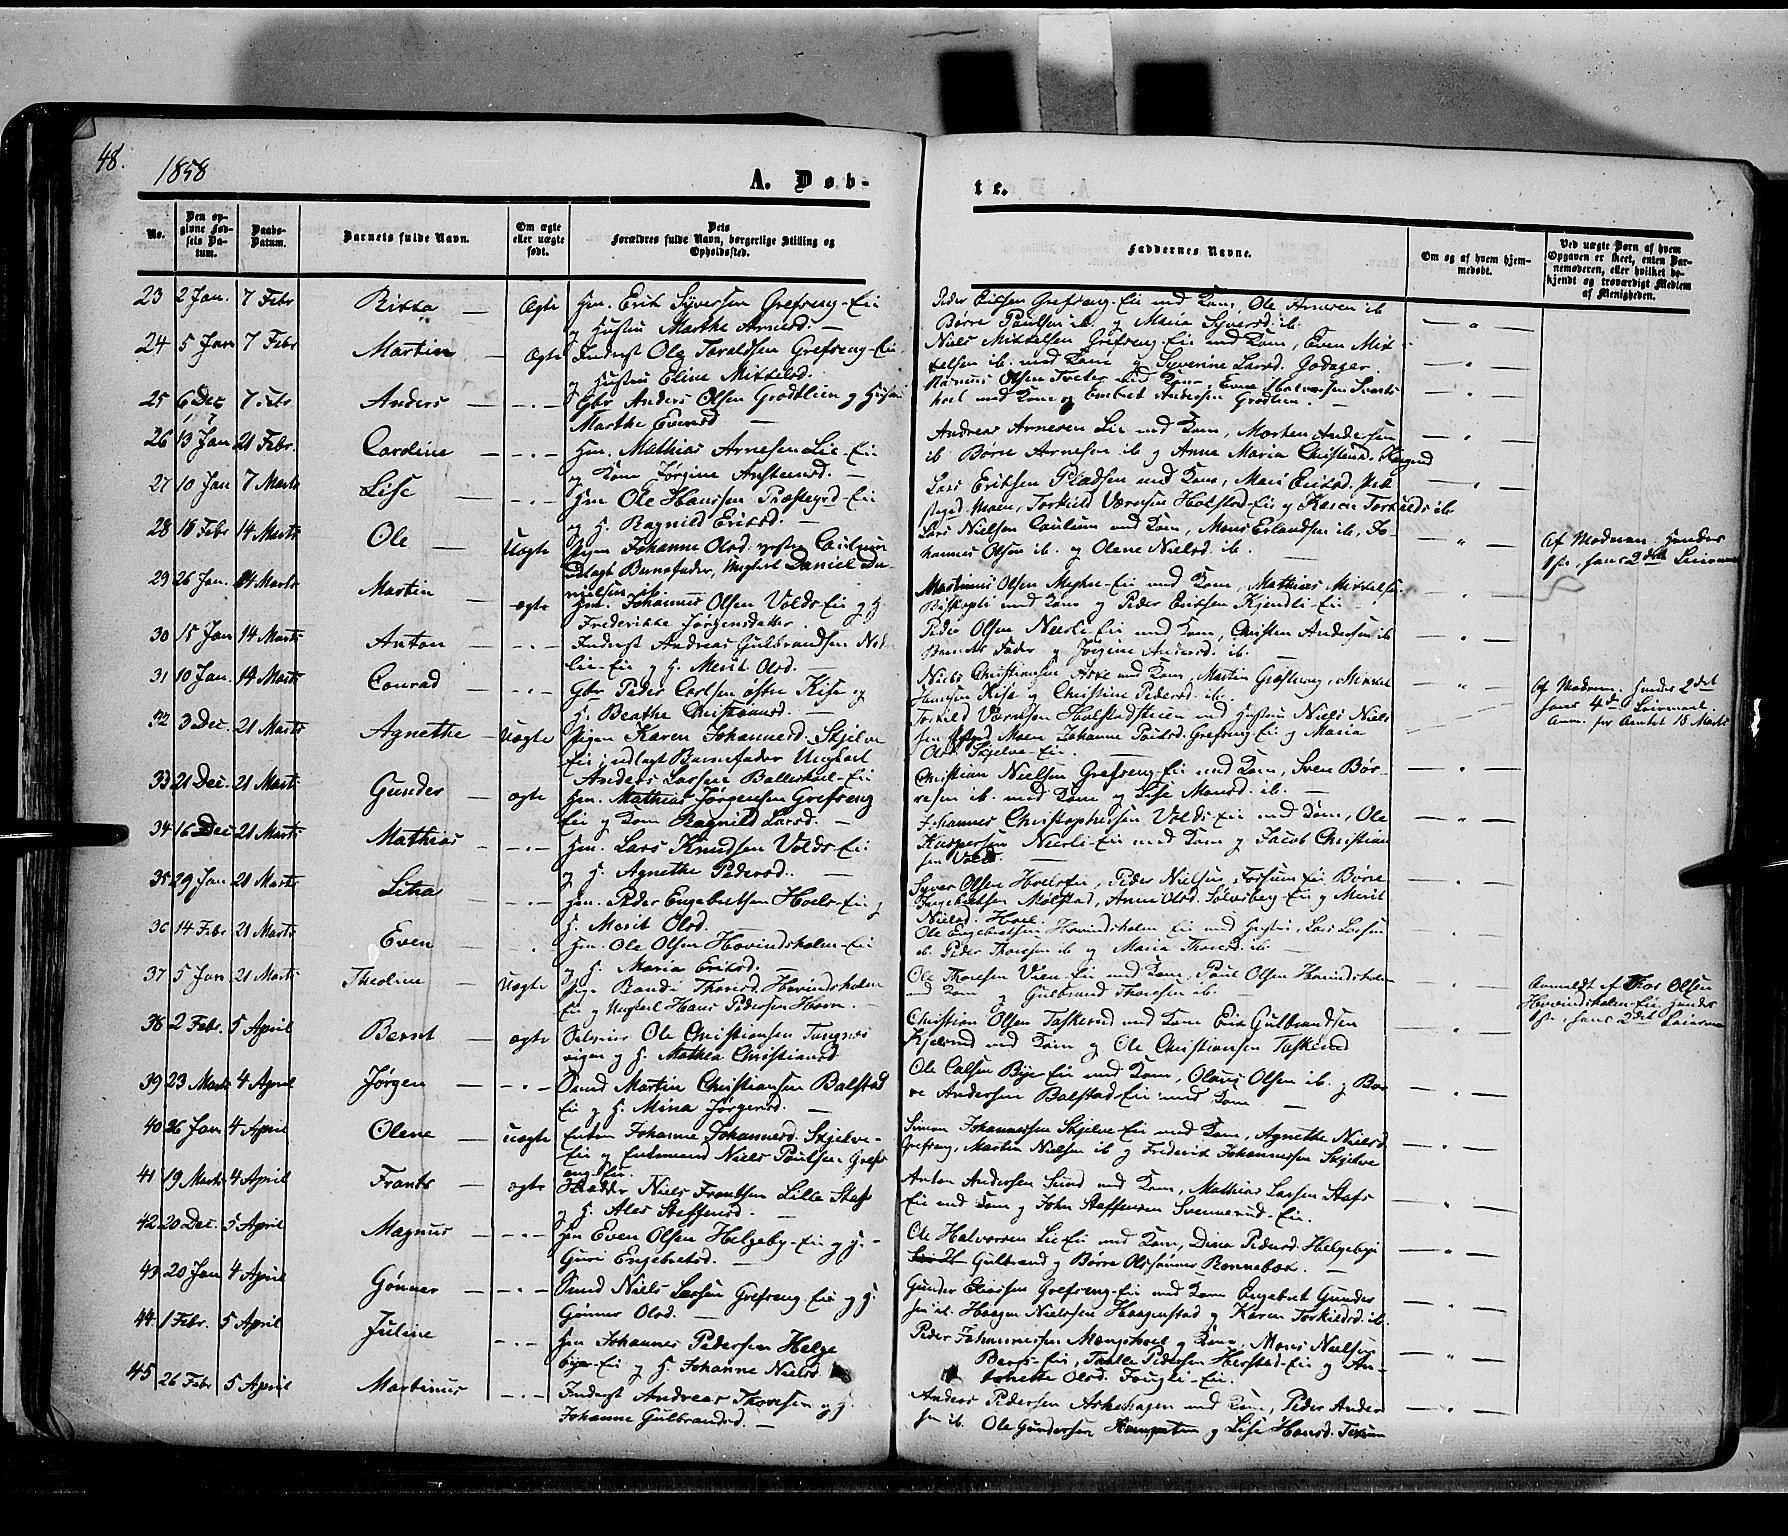 48.
1858
A. Døb-
te.
No.
Den op-
givne Fød-
sels Da-
tum.
Daabs-
Datum.
Barnets fulde Navn.
Om ægte
eller uægte
født.
Dets
Forældres fulde Navn, borgerlige Stilling og
Opholdssted.
Faddernes Navne.
Om og af hvem hjem-
medøbt.
Ved uægte Børn af hvem
Opgaven er skeet, enten Bar-
nemoderen, eller hvilket be-
kjendt og troværdigt Medlem
af Menigheden.
23 2 Jan. 7 Febr Ægte Hm. Erik Syversen Grefseng-Eie
og Hustru Marthe Arnesd. —
Peder Eriksen Grefseng-Eie med Kone, Ole Arnesen ib
Børre Paulsen ib. og Maria Syversd. ib.
24 5 Jan 7 Febr Martin — Ægte Inderst Ole Taraldsen Grefseng-Eie
og Hustru Eline Mikkelsd.
Niels Mikkelsen Grefseng-Eie med Kone, Even Mik-
kelsen ib. med Kone og Syverine Larsd. Jodager.
25 6 Dec 7 Febr Anders — - " - Gbr Anders Olsen Grødtlien og Hustru
Marthe Evensd —
Rasmus Olsen Tveter med Kone, Even Halvorsen
med Kone og Embret Andersen Grødtlien. -
26 13 Jan 21 Febr. Cardine — - " - Hm. Mathias Arnesen Lie-Eie
og Kone Jørgine Anstensd. —
Andreas Arnesen Lie med Kone, Morten Andersen
ib Børre Arnesen ib og Anne Maria Christensd.
27 10 Jan 7 Marts Lise — - " - Hm Ole Hansen Præstegrd-Eie
og H. Ragnild Eriksd. —
Lars Eriksen Pladsen med Kone, Mari Eriksd.
Moen, Torkild Værnsen Holstad-Eie og Karen Torkildsd. ib.
28 16 Febr 14 Marts Ole — Uægte Pigen Johanne Olsd. Caulum
udlagt Barnefader, Ungkarl Daniel Da-
nielsen ib.
Lars Nielsen Caulum med Kone, Mons Erlandsen ib, Jo-
hannes Olsen ib. og Olene Nielsd. ib.
Af Moderen. Hendes
1ste, hans 2det Leiermaal
29 26 Jan. 14 Marts Martin ægte Hm. Johannes Olsen Volds-Eie og H.
Frederikke Jørgensdatter. —
Martinus Olsen Eie med Kone, Mathias Mikkelsen
Biskopli med Kone og Peder Eriksen Kjendli-Eie
30 15 Jan 14 Marts Anton — - " - Inderst Andreas Gulbrandsen
Eie og H. Marit Olsd. —
Peder Olsen Nerli-Eie med Kone, Christen Andersen ib
Barnets Fader og Jørgine Andersd. ib.
31 10 Jan. 14 Marts Conrad - " - Gbr Peder Carlsen østre Kise og
H. Beathe Christiansd. —
Niels Christiansen Aske med Kone, Martin Grefseng, Mikkel
Hansen Kise og Christine Pedersd. ib.
32 3 Dec. 21 Marts Agnethe — Uægte Pigen Karen Johannesd. Skjelve
Eie, udlagt Barnefader Ungkarl
Anders Larsen Ballerhoel-Eie
Torkild Værnsen Holstadstuen med Hustru Niels Niels
sen Moen Johanne Paulsd. Grefseng Eie og Maria
Olsd. Skjelve-Eie.
Af Moderen. Hendes 2det
hans 4de Leiermaal.
Anm. for Amtet 18 Marts
33 21 Dec. 21 Marts Gunder — ægte Hm. Mathias Jørgensen Grefseng
Eie og Kone Ragnild Larsd. —
Christian Nielsen Grefseng-Eie med Kone, Sven Bør-
resen ib. med Kone og Lise Monsd. ib. —
34 16 Dec 21 Marts Mathias — - " - Hm. Lars Knudsen Volds-Eie
og H. Agnethe Pedersd. —
Johannes Christophersen Volds-Eie med Kone, Ole
Kaspersen Nerli-Eie med Kone og Jacob Christian
sen Vold.
35 29 Jan 21 Marts — - " - Hm. Peder Engebretsen Hoels-Eie og
H. Marit Olsd.
Syver Olsen Hoels-Eie, Peder Nielsen Forsum-Eie Børre
Engebretsen Molstad, Anne Olsd. Sølvsberg-Eie og Marit
Nielsd. Hoel.
36 14 Febr 21 Marts Even Hm. Ole Olsen Hovindsholm-Eie
og H. Maria Eriksd. —
Ole Engebretsen Hovindsholm-Eie med Hustru, Lars Larsen
ib. Peder Thoresen ib og Maria Thoresd. ib.
37 5 Jan 21 Marts Theoline — Uægte Pige Randi Thoresd. Hovindsholm
Eie og Ungkarl Hans Pedersen
Ole Thoresen Vien-Eie med Kone, Paul Olsen Hovindsholm
med Kone og Gulbrand Thoresen ib. —
Anmeldt af Thor Olsen
Hovindsholm-Eie, hendes
1ste, hans 2det Leiermaal
38 2 Febr. 5 April Bernt — ægte Ole Christiansen
og H. Mathea Christiansd
Christian Olsen Taskerud med Kone Erik Gulbrandsen
Kjelsrud med Kone og Ole Christiansen Taskerud
39 23 Marts 4 April Jørgen — - " - Smed Martin Christiansen Balstad
Eie og H. Mina Jørgensd. —
Ole Carlsen Bye-Eie med Kone, Olaus Olsen ib. og Bør-
re Andersen Balstad-Eie med Kone —
40 26 Jan 4 April Olene — uægte Enken Johanne Johannesd. Skjelve-
Eie og Enkemand Niels Paulsen Grefs
eng-Eie.
Simon Johannessen Skjelve-Eie med Kone, Agnethe Nielsd
Grefseng, Martin Nielsen ib og Frederik Johannessen Skjelve
41 19 Marts 4 April Frants — ægte Niels Frantsen Lille Stafs
og H. Ales Steffensd. —
Anton Andersen Sund med Kone, Mathias Larsen Stafs
Eie med Kone og John Steffensen Svennerud-Eie.
42 20 Dec. 5 April Magnus — - " - Hm Even Olsen Helgeby-Eie og H. -
Guri Engebretsd. —
Ole Halvorsen Lie-Eie med Kone, Dina Pedersd. Helgebye
Gulbrand og Børre Olssønner Rønnebæk. —
43 20 Jan 4 April Gønner — - " - Smed Niels Larsen Grefseng-Eie og H.
Gønner Olsd. —
Gunder Eliassen Grefseng-Eie med Kone Engebret Gunder
sen ib. Haagen Nielssen Haagenstad og Karen Torkildsd. ib.
44 1 Febr. 5 April Juline - " - Hm Johannes Pedersen Helge
bye-Eie og H. Johanne Nielsd.
Peder Johannessen Mængshoel og Kone Mons Nielsen
Bergs-Eie, Tolle Pedersen Herstad-Eie og An-
tonette Olsd. Fougli-Eie.
45 26 Febr 5 April Martinus - " - Inderst Andreas Thoresen og H.
Johanne Gulbrandsd. —
Anders Pedersen Askehagen med Kone, Peder Ander
sen ib. Ole Gundersen og Lise Hansd.